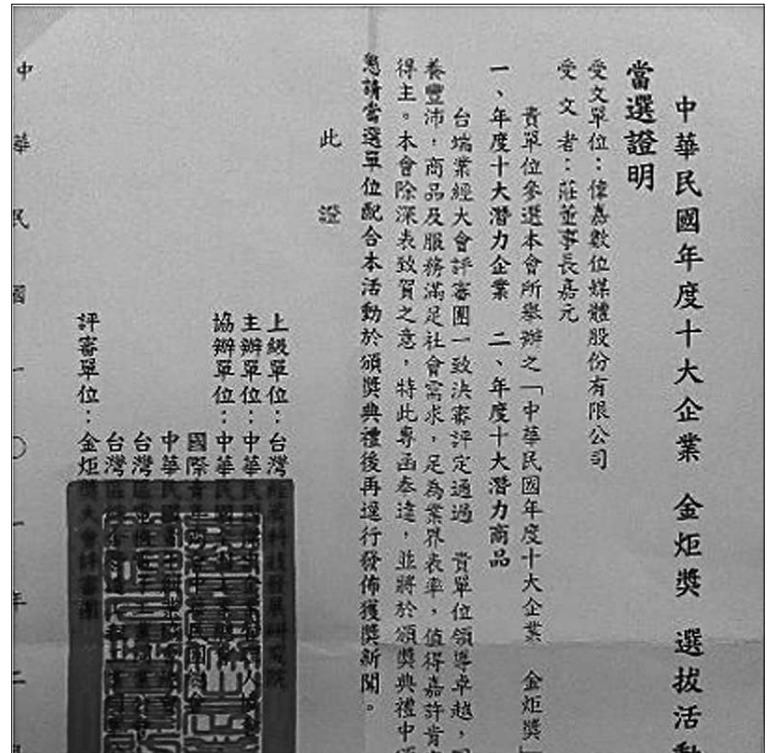 中華民國年度十大企業 金炬獎 選拔活動
當選證明
受文單位：偉嘉數位媒體股份有限公司
受文者：莊董事長嘉元
貴單位參選本會所舉辦之「中華民國年度十大企業 金炬獎」
一、年度十大潛力企業 二、年度十大潛力商品
台端業經大會評審團一致決審評定通過 貴單位領導卓越，
養豐沛，商品及服務滿足社會需求，足為業界表率，值得嘉許
得主。本會除深表致賀之意，特此專函奉達，並將於頒獎典禮中
懇請當選單位配合本活動於頒獎典禮後再逕行發佈獲獎新聞。
此證
上級單位：台灣
主辦單位：中華
協辦單位：中華
國際
中華
台灣
台灣
評審單位：金炬獎大會評審團
中華民國一〇一年二